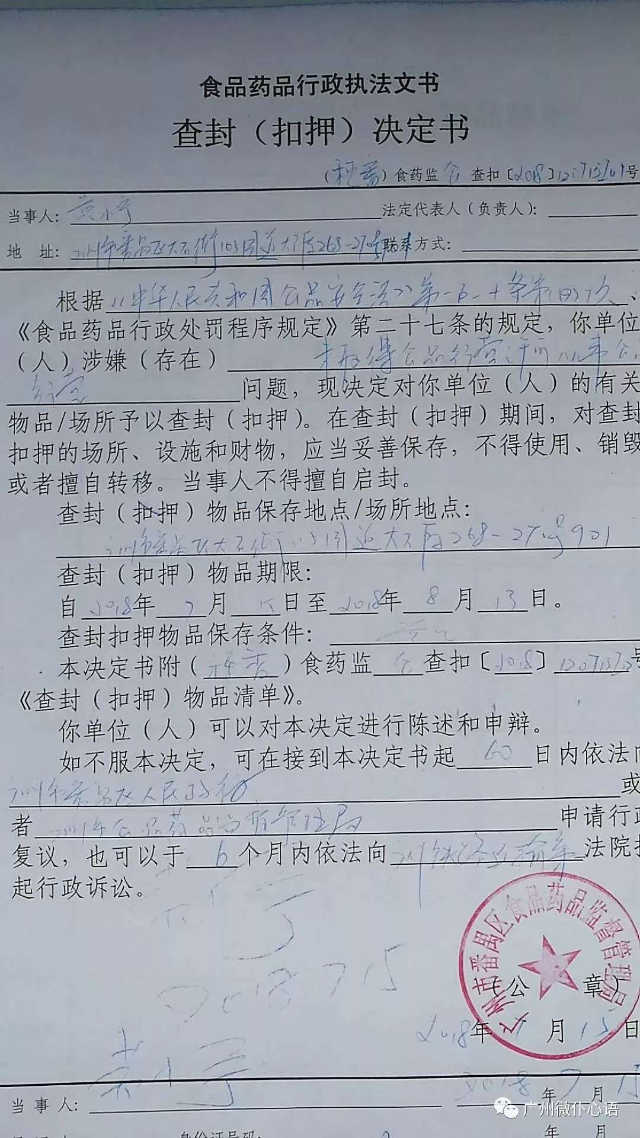 食品药品行政执法文书
查封（扣押）决定书
食药监 查扣〔2018〕 号
当事人： 法定代表人（负责人）：
地 址： 联系方式：
根据《中华人民共和国食品安全法》第一百一十条 、
《食品药品行政处罚程序规定》第二十七条的规定，你单位
（人）涉嫌（存在）未取得食品经营许可从事食
经营 问题，现决定对你单位（人）的有关
物品/场所予以查封（扣押）。在查封（扣押）期间，对查封
扣押的场所、设施和财物，应当妥善保存，不得使用、销毁
或者擅自转移。当事人不得擅自启封。
查封（扣押）物品保存地点/场所地点：
268-270号901
查封（扣押）物品期限：
自2018年7月15日至2018年8月13日。
查封扣押物品保存条件：
本决定书附（ ）食药监 食 查扣〔2018〕 号
《查封（扣押）物品清单》。
你单位（人）可以对本决定进行陈述和申辩。
如不服本决定，可在接到本决定书起60日内依法向
广州市番禺区人民政府 或
者 广州市食品药品监督管理局 申请行政
复议，也可以于6个月内依法向 广州铁路运输 法院提
起行政诉讼。
2018 7 15
广州市番禺区食品药品监督管理局
（公 章）
2018年7月15日
2018年7月15
当 事 人：
年 月
身份证号码：
广州微仆心语